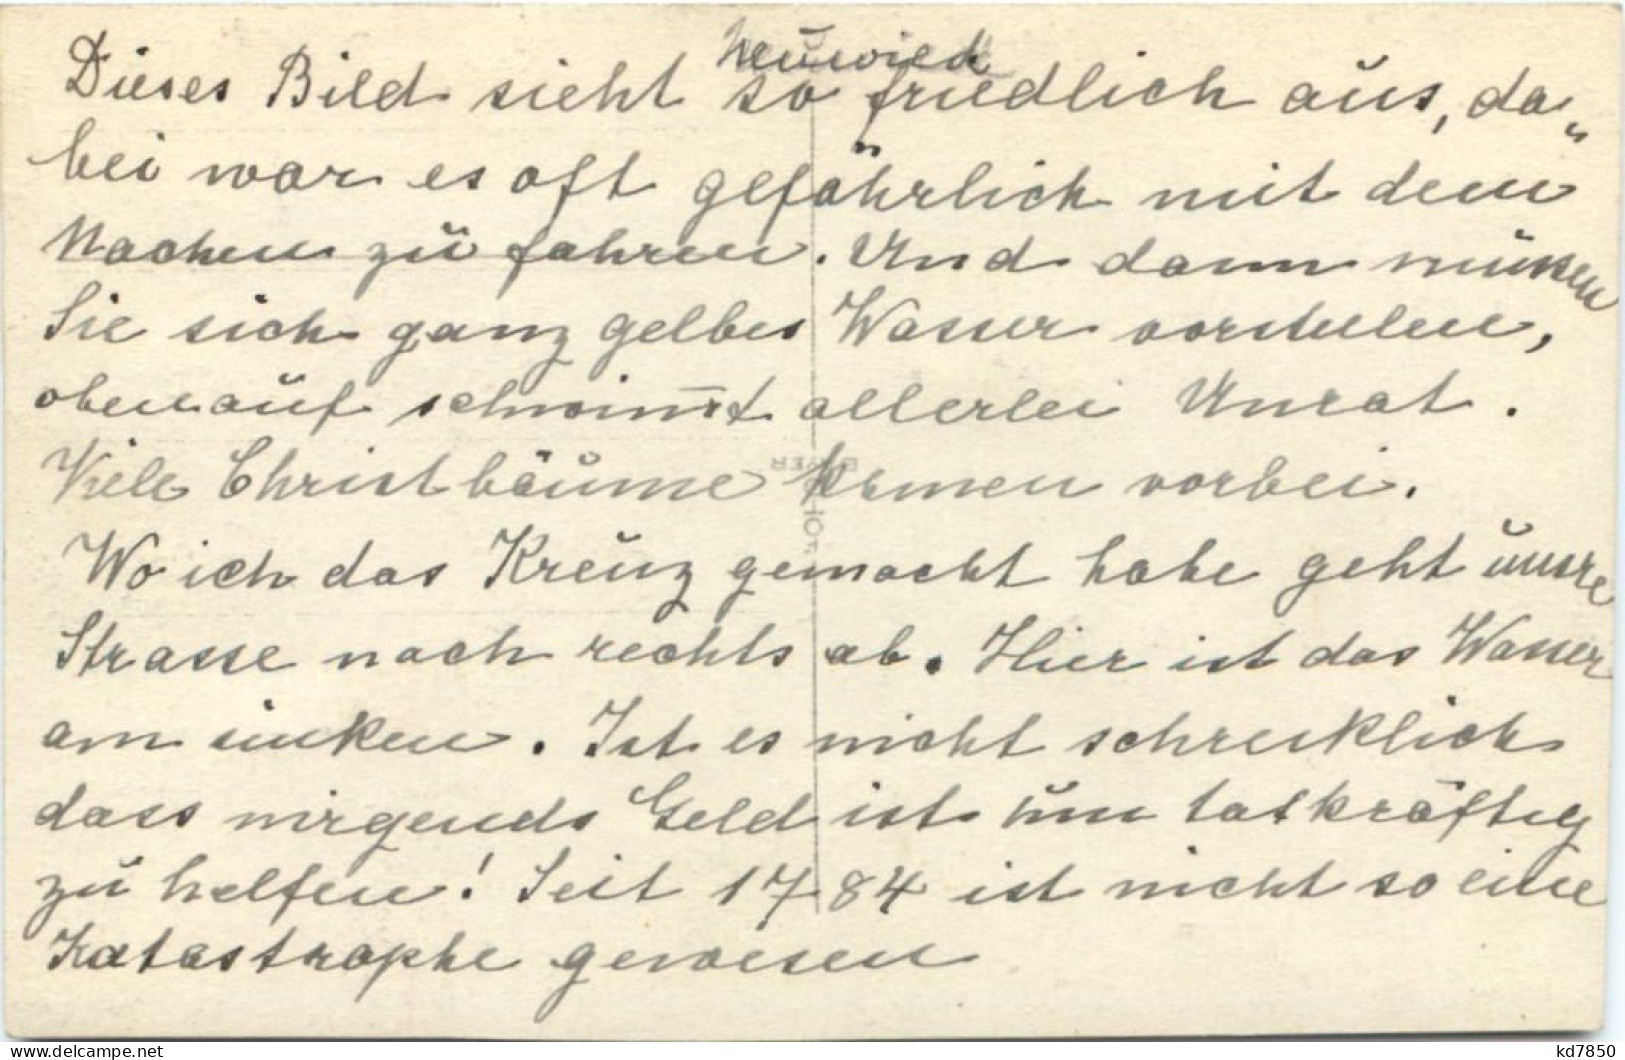 Neuwied
Dieses Bild sieht so friedlich aus, da„
bei war es oft gefährlich mit dem
Nachen zu fahren. Und dann müssen
Sie sich ganz gelbes Wasser vorstellen,
obenauf schwim̅t allerlei Unrat.
Viele Christbäume kamen vorbei.
Wo ich das Kreuz gemacht habe geht unsre
Strasse nach rechts ab. Hier ist das Wasser
am sinken. Ist es nicht schrecklich
dass nirgends Geld ist um tatkräftig
zu helfen! Seit 1784 ist nicht so eine
Katastrophe gewesen
delcampe.net
kd7850